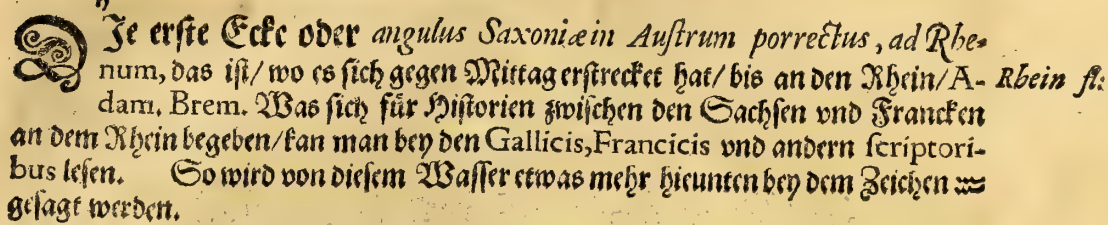 DJe erste Ecke oder angulus Saxoniæ in Austrum porrectus, ad Rhe-
num, das ist/ wo es sich gegen Mittag erstrecket hat/ bis an den Rhein/ A- Rhein fl:
dam. Brem. Was sich für Historien zwischen den Sachsen vnd Francken
an dem Rhein begeben/ kan man bey den Gallicis, Francicis vnd andern scriptori-
bus lesen. So wird von diesem Wasser etwas mehr hieunten bey dem Zeichen ♒
gesagt werden.